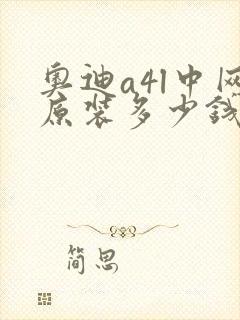 奥迪a4l中网
原装多少钱
简思